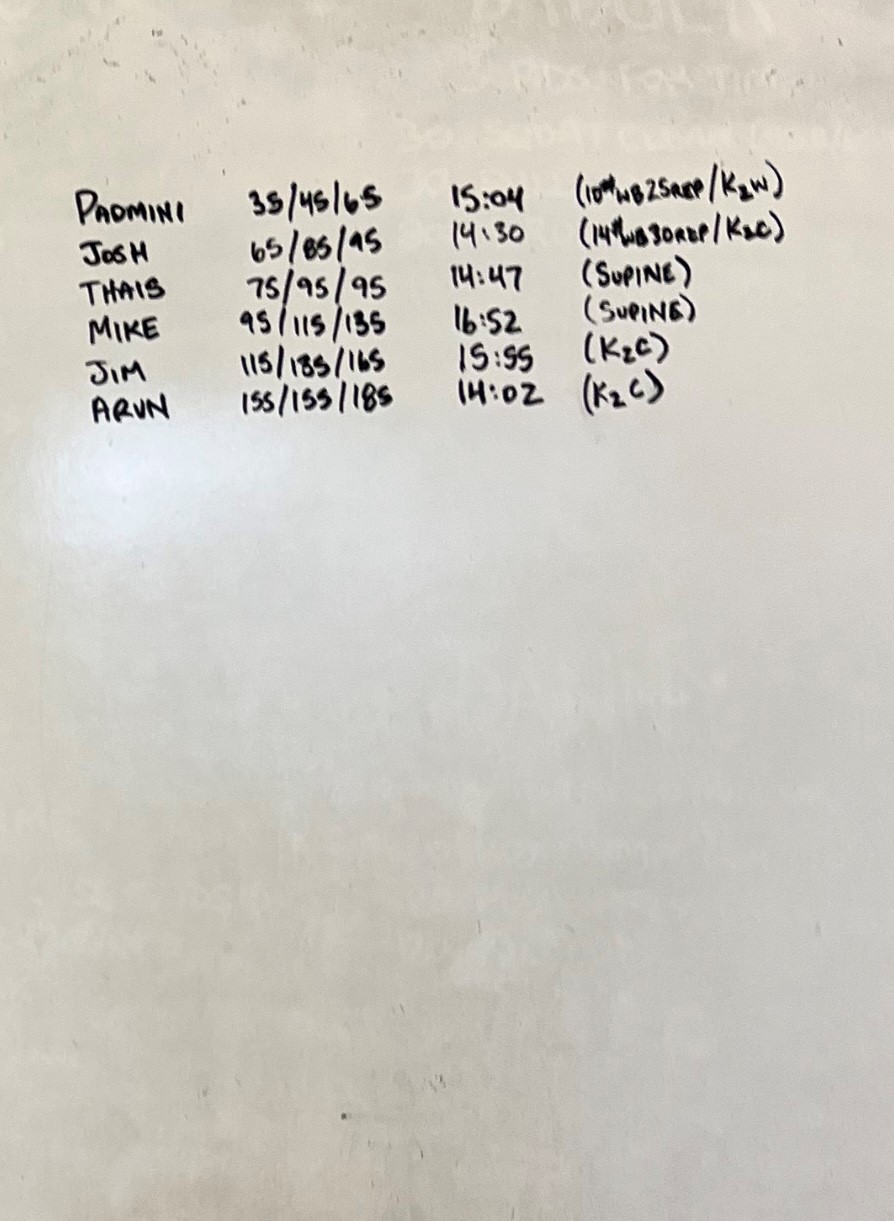 PADMINI 35/45/65 15:04 (10# WB 25REP/K2W)
JOSH 65/85/95 14:30 (14# WB 30REP/K2C)
THAIS 75/95/95 14:47 (SUPINE)
MIKE 95/115/135 16:52 (SUPINE)
JIM 115/135/165 15:55 (K2C)
ARUN 155/155/185 14:02 (K2C)